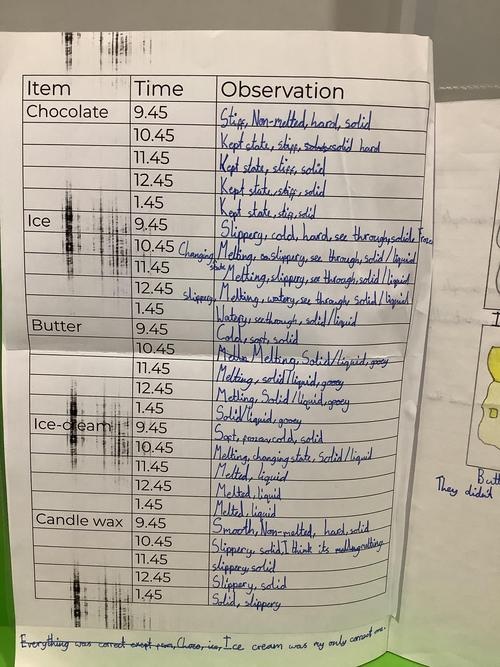 Item Time Observation
Chocolate 9.45 Stiff, Non-melted, hard, solid
10.45 Kept state, stiff, solid hard
11.45 Kept state, stiff, solid
12.45 Kept state, stiff, solid
1.45 Kept state, stiff, solid
Ice 9.45 Slippery, cold, hard, see through, solid,
10.45 Changing state Melting, slippery, see through, solid/liquid
11.45 Melting, slippery, see through, solid/liquid
12.45 slippery Melting, watery, see through, solid/liquid
1.45 Watery, seethrough, solid/liquid
Butter 9.45 Cold, soft, solid
10.45 Melting, Solid/liquid, gooey
11.45 Melting, solid/liquid, gooey
12.45 Melting, Solid/liquid, gooey
1.45 Solid/liquid, gooey
Ice-cream 9.45 Soft, frozen, cold, solid
10.45 Melting, changing state, Solid/liquid
11.45 Melted, liquid
12.45 Melted, liquid
1.45 Melted, liquid
Candle wax 9.45 Smooth, Non-melted, hard, solid
10.45 Slippery, solid, I think its melting
11.45 slippery, solid
12.45 Slippery, solid
1.45 Solid, slippery
Everything was correct Choco, ice, Ice cream was my only correct one.
Butt
They didn't